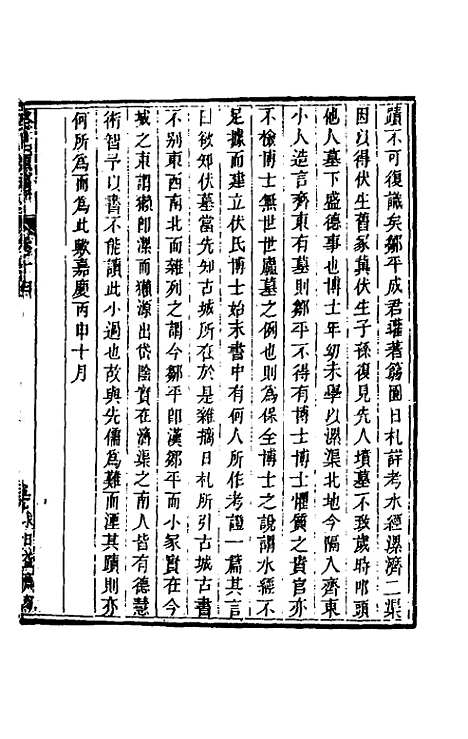 蹟不可復識矣鄒平成君瓘著篛園日札詳考水經漯濟二渠
因以得伏生舊冢冀伏生子孫復見先人墳墓不致歲時卭頭
他人墓下盛德事也博士年幼未學以漯渠北地今隔入齊東
小人造言齊東有墓則鄒平不得有博士博士懼質之貴官亦
不檢博士無世世廬墓之例也則為保全博士之說謂水經不
足據而建立伏氏博士始末書中有何人所作考證一篇其言
曰欲知伏墓當先知古城所在於是雜摘日札所引古城古書
不別東西南北而雜列之謂今鄒平即漢鄒平而小冢實在今
城之東謂獺即漯而獺源出岱陰實在濟渠之南人皆有德慧
術智予以書不能讀此小過也故與先儒為難而湮其蹟則亦
何所為而為此歟嘉慶丙申十月